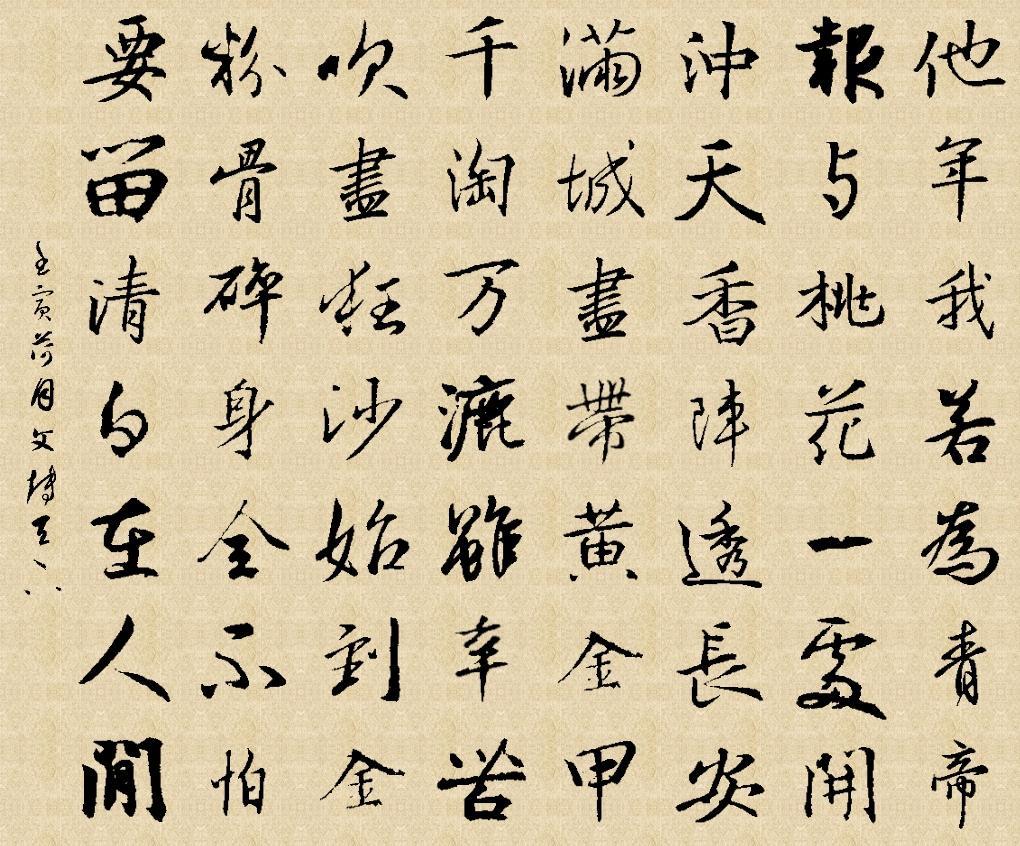 他年我若為青帝
報与桃花一處開
沖天香陣透長安
滿城盡帶黄金甲
千淘万漉雖辛苦
吹盡狂沙始到金
粉骨碎身全不怕
要留清白在人間
壬寅荷月文博